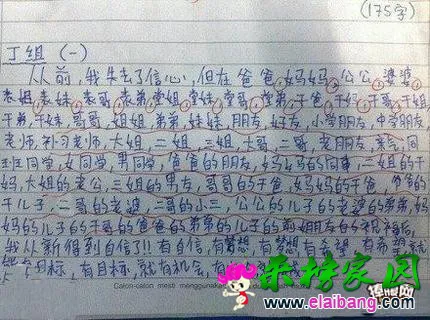 (175字)
丁组 (一)
从前,我失去了信心,但在爸爸,妈妈,公公,婆婆
表姐,表妹,表哥,表弟,堂姐,堂妹,堂哥,堂弟,干爸,干妈,干哥,干姐,
干弟,干妹,哥哥,姐姐,弟弟,妹妹,朋友,好友,小学朋友,中学朋友,
老师,补习老师,大姐,二姐,三姐,大哥,二哥,老朋友,
班同学,女同学,男同学,爸爸的朋友,妈妈的同事,二姐的干
妈,大姐的老公,三姐的男友,哥哥的干爸,妈妈的干爸,爷爷的
干儿子,二哥的老婆,二哥的小三,公公的儿子的老婆的弟弟,妈
妈的儿子的干哥的爸爸的弟弟的儿子的前姐朋友的祝福后,
我从新得到自信了!!有自信,有梦想,有梦想,有希望,有希望就
有目标,有目标,就有机会,
Calon-calon mesti menggunakan
采榜家园
www.elaibang.com